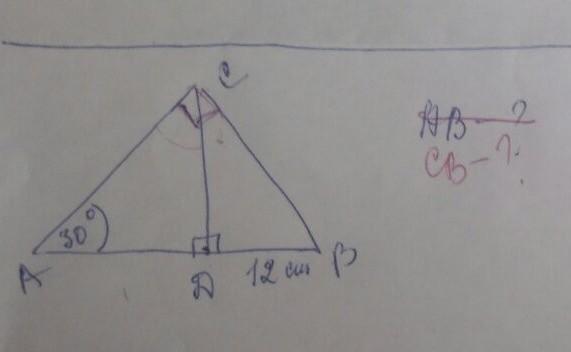 C
AB - ?
CB - ?
30°
A
D
12 см
B